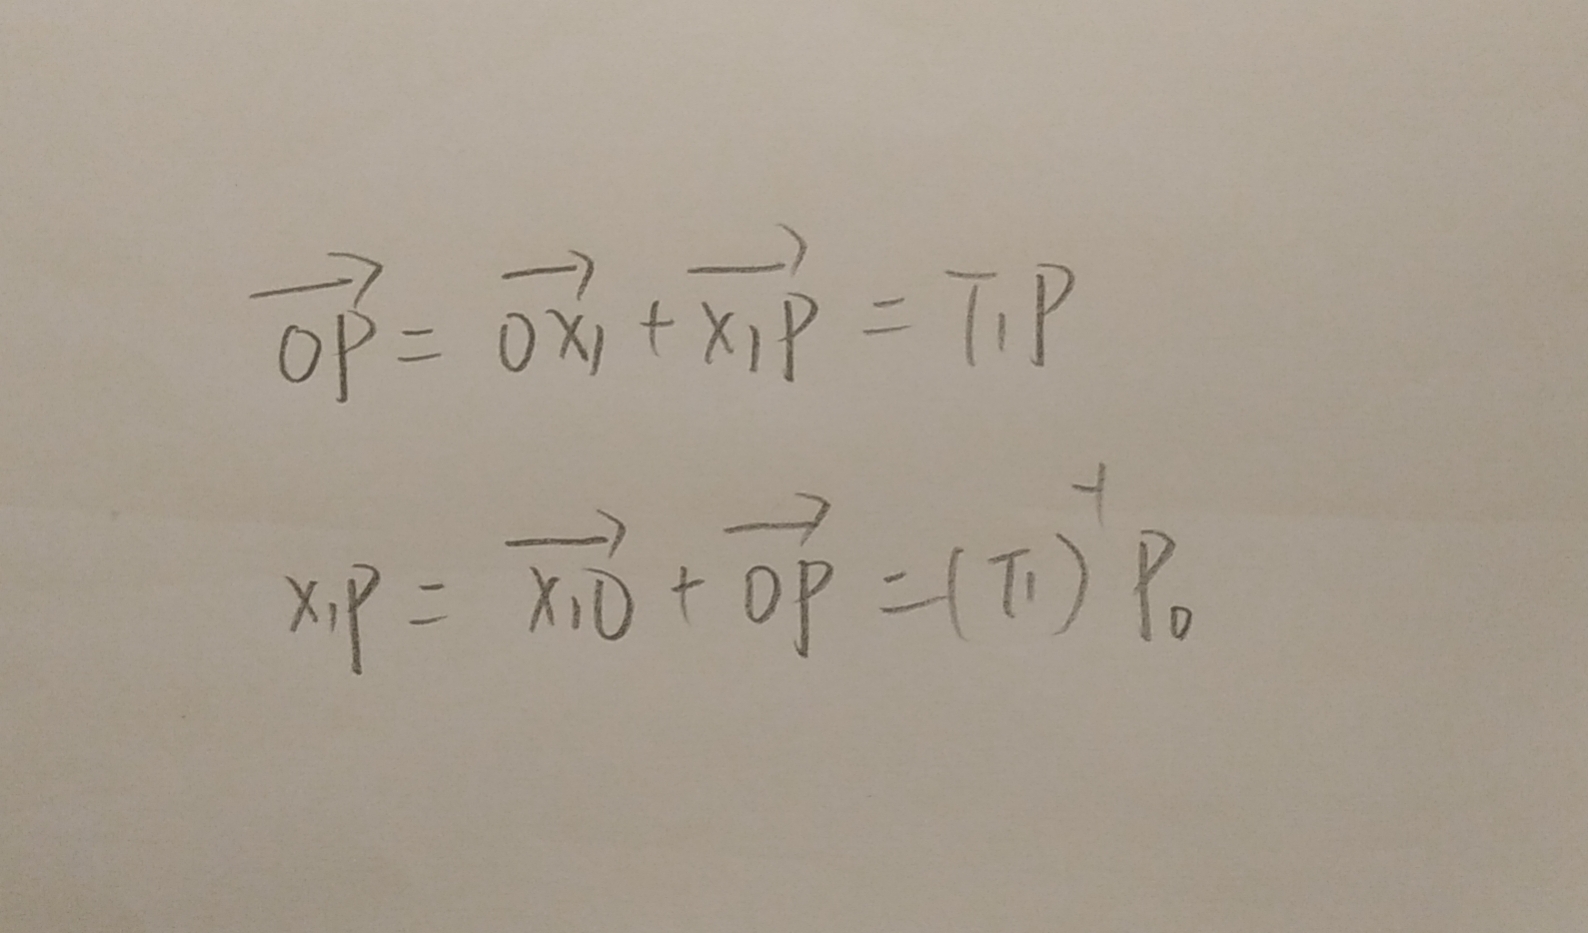 $\overrightarrow{OP} = \overrightarrow{OX_1} + \overrightarrow{X_1P} = T_1P$
$X_1P = \overrightarrow{X_1O} + \overrightarrow{OP} = (T_1)^{-1} P_0$